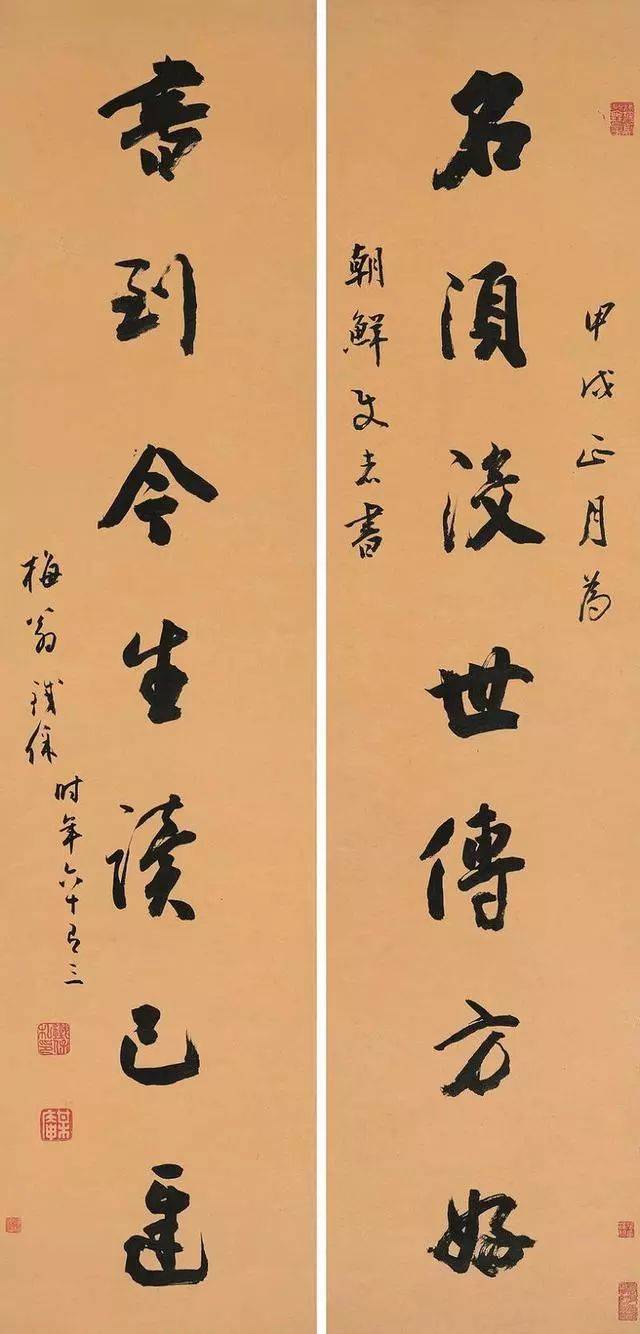 甲戌正月為
名須没世傳方好
朝鮮書
書到今生讀已遲
梅翁鐵保时年六十有三